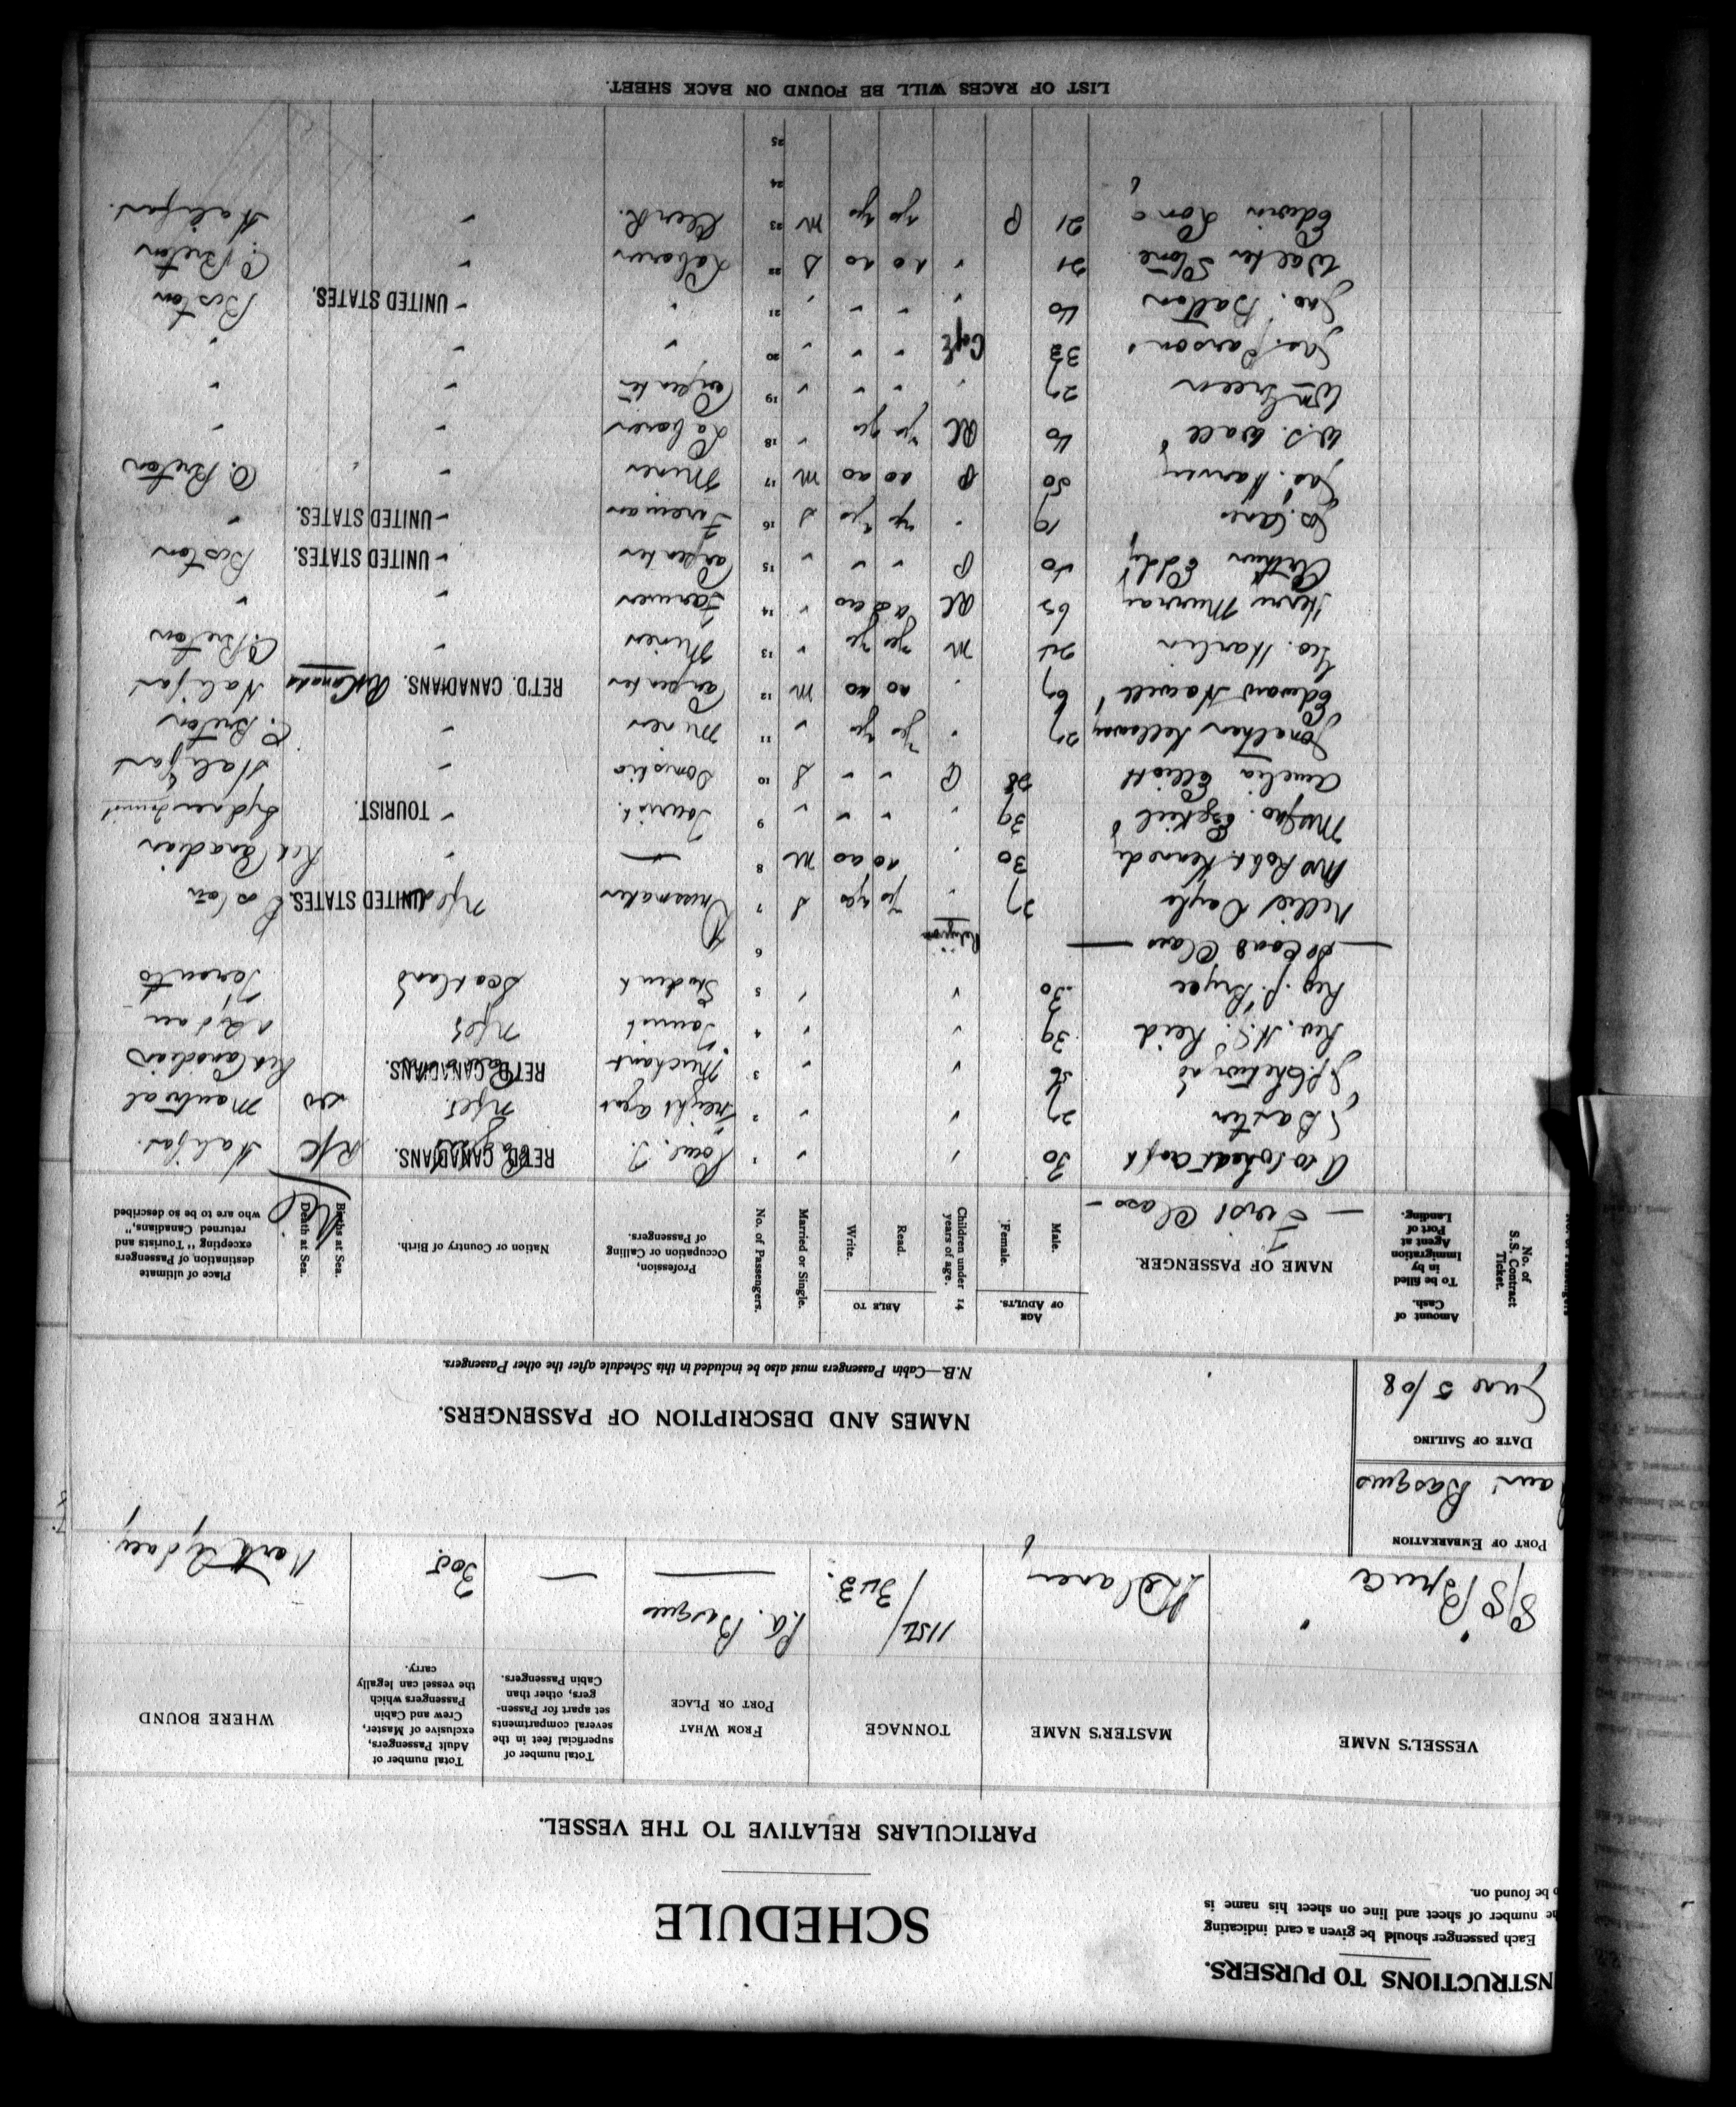 INSTRUCTIONS TO PURSERS.
Each passenger should be given a card indicating
the number of sheet and line on sheet his name is
to be found on.
SCHEDULE
PARTICULARS RELATIVE TO THE VESSEL.
VESSEL'S NAME MASTER'S NAME TONNAGE FROM WHAT PORT OR PLACE Total number of superficial feet in the several compartments set apart for Passengers, other than Cabin Passengers. Total number of Adult Passengers, exclusive of Master, Crew and Cabin Passengers which the vessel can legally carry. WHERE BOUND
S/S Bruce Delaney 1154/343. P.a. Basques — 305. North Sydney
PORT OF EMBARKATION
Basques
DATE OF SAILING
June 5/08
NAMES AND DESCRIPTION OF PASSENGERS.
N.B.—Cabin Passengers must also be included in this Schedule after the other Passengers.
No. of S.S. Contract Ticket. Amount of Cash. To be filled in by Immigration Agent at Port of Landing. NAME OF PASSENGER. AGE OF ADULTS. Male. Female. Children under 14 years of age. ABLE TO Read. Write. Married or Single. No. of Passengers. Profession, Occupation or Calling of Passengers. Nation or Country of Birth. Births at Sea. Death at Sea. Place of ultimate destination of Passengers excepting "Tourists and returned Canadians," who are to be so described
— First Class —
30 1 RET'D. CANADIANS. Halifax
Baxter 27 2 Freight agent Nfld. do Montreal
56 3 Merchant RET'D. CANADIANS. Ret Canadian
Rev. H. S. Reid 39 4 Tourist Nfld
Reg. J. Bryce 30 5 Student Scotland Toronto
— Second Class — Religion 6
Nellie Doyle 27 " yes yes S 7 Dressmaker Nfld UNITED STATES. Boston
Mrs Robt Kennedy 30 " no no M 8 — " Ret Canadian
Mrs Jno. Ezekiel 39 " " " " 9 Tourist " TOURIST. Sydney Tourist
Amelia Elliott 28 " " S 10 Domestic " Halifax
Jonathan Kellaway 27 " yes yes " 11 Miner " C. Breton
Edward Howell 67 " no no M 12 Carpenter RET'D. CANADIANS. Halifax
Geo. Harlin 24 M yes yes " 13 Miner " C. Breton
Henry Murray 65 RC no no " 14 Farmer " "
Arthur Eddy 40 P " " " 15 Carpenter " UNITED STATES. Boston
19 " yes yes S 16 Fireman " UNITED STATES. "
Jas. Harvey 50 P no no M 17 Miner " C. Breton
W.J. Wall 40 RC yes yes " 18 Laborer " "
Wm Green 27 " " " " 19 Carpenter " "
Jas. Parsons 32 CofE " " " 20 " " "
Jno. Batton 40 " " " " 21 " " UNITED STATES. Boston
Walter Stone 21 " no no S 22 Laborer " C. Breton
Edwin Long 21 P yes yes M 23 Clerk. " Halifax.
24
25
LIST OF RACES WILL BE FOUND ON BACK SHEET.